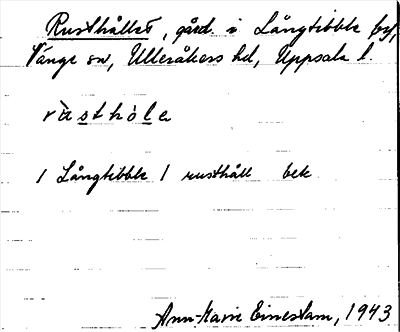 Rusthållet, gård i Långtibble by,
Vänge sn, Ulleråkers hd, Uppsala l.
rùsthòle
1 Långtibble 1 rusthåll bek
Ann-Marie Einestam, 1943